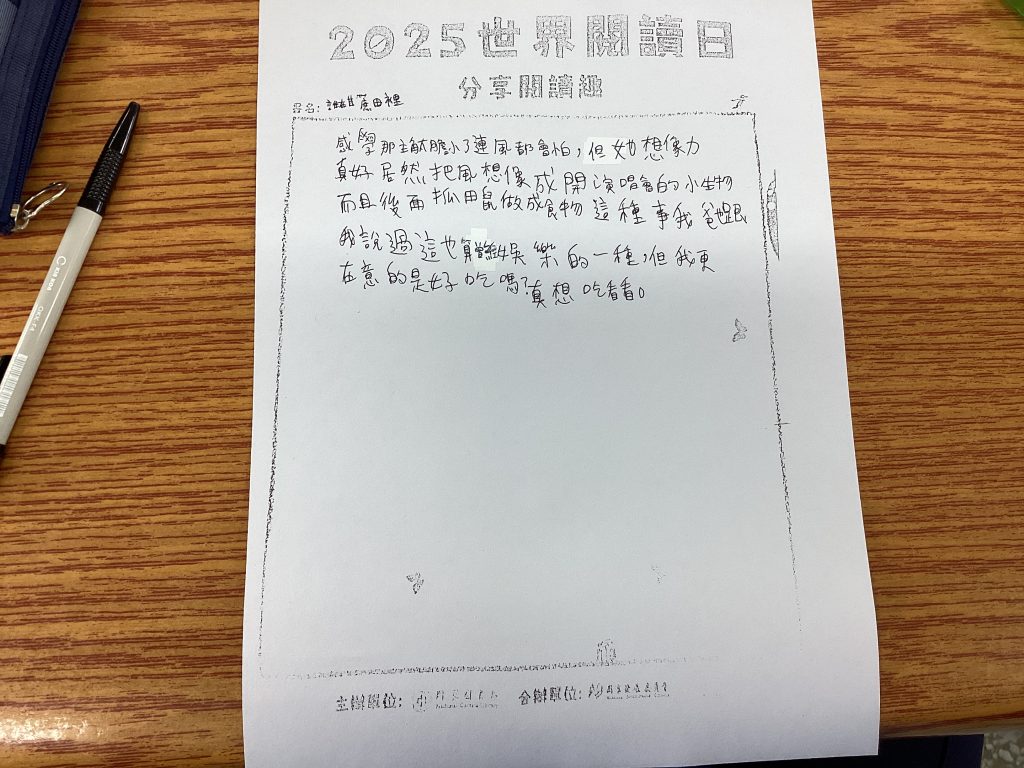 2025世界閱讀日
分享閱讀趣
感學那主軸膽小了連風都會怕，但她想像力
真好居然把風想像成開演唱會的小生物
而且後面抓田鼠做成食物這種事我爸跟
我說過這也算是娛樂的一種，但我更
在意的是好吃嗎？真想吃看看。
主辦單位：
合辦單位：